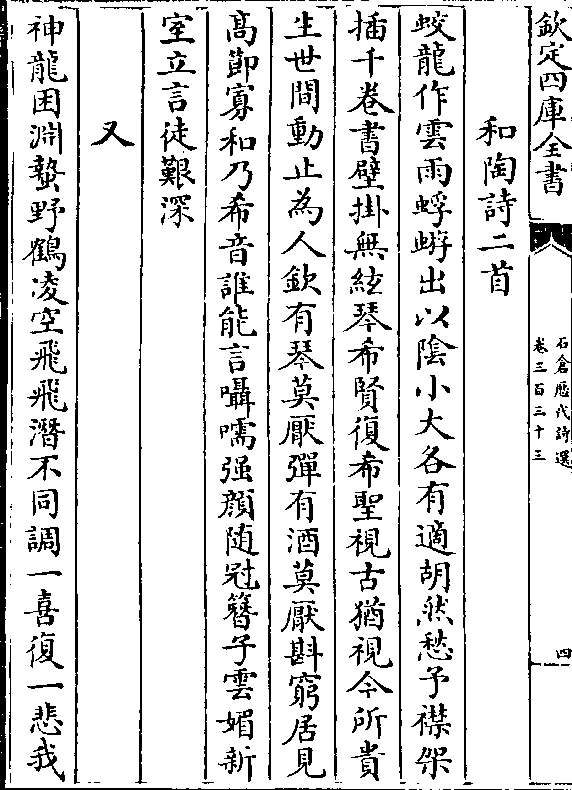 欽定四庫全書
石倉歷代詩選
卷三百三十三
四
和陶詩二首
蛟龍作雲雨蜉蝣出以陰小大各有適胡然愁予襟架
插千卷書壁掛無絃琴希賢復希聖視古猶視今所貴
生世間動止為人欽有琴莫厭彈有酒莫厭斟窮居見
高節寡和乃希音誰能言囁嚅强顔随冠簪子雲媚新
室立言徒艱深
又
神龍困淵蟄野鶴凌空飛飛潛不同調一喜復一悲我